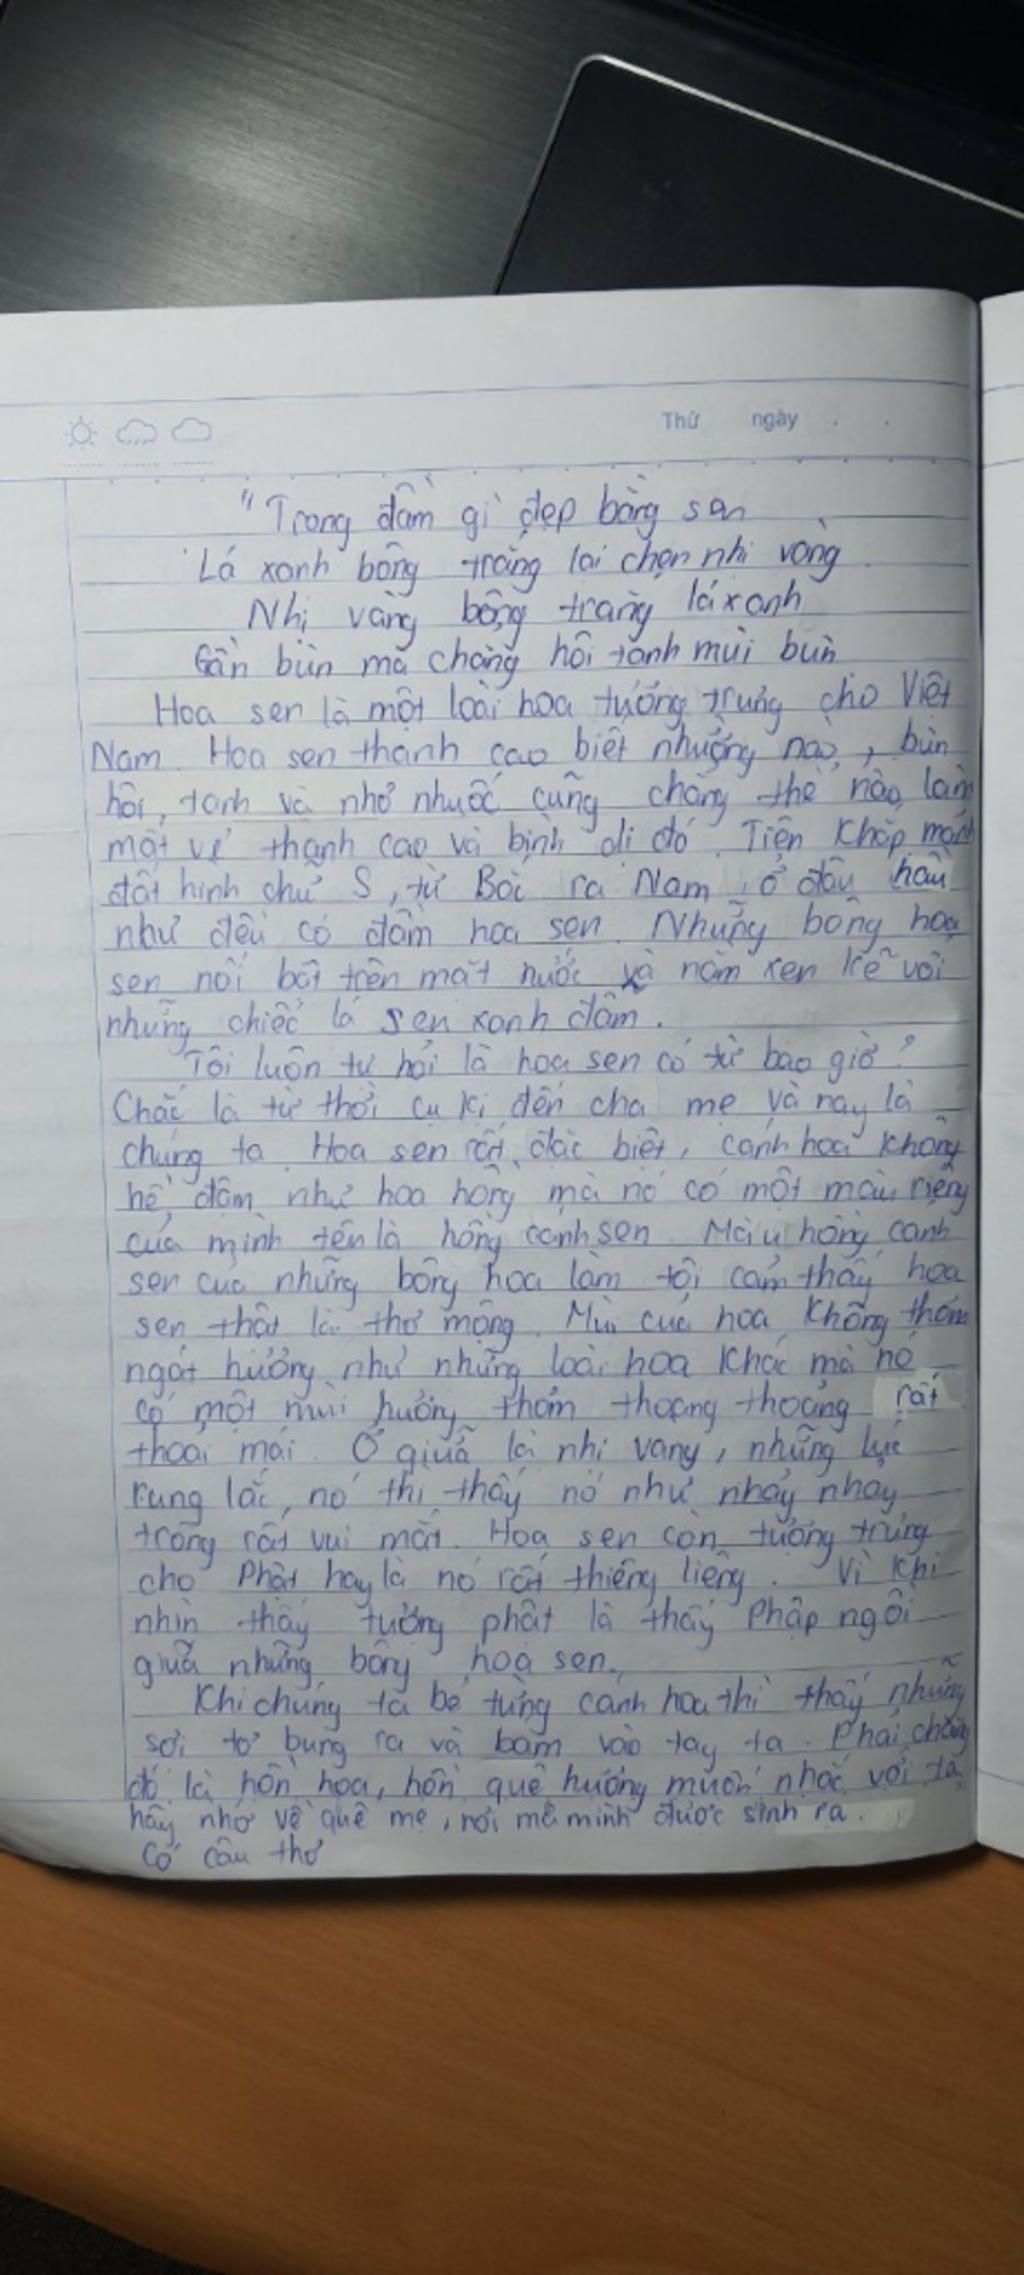 Thứ ngày
"Trong đầm gì đẹp bằng sen
Lá xanh bông trắng lại chen nhị vàng
Nhị vàng bông trắng lá xanh
Gần bùn mà chẳng hôi tanh mùi bùn
Hoa sen là một loài hoa tượng trưng cho Việt
Nam. Hoa sen thanh cao biết nhường nào, bùn
hôi, tanh và nhơ nhuốc cũng chẳng thể nào làm
mất vẻ thanh cao và bình dị đó. Tiên khắp mảnh
đất hình chữ S, từ Bắc ra Nam, ở đâu hầu
như đều có đầm hoa sen. Những bông hoa
sen nổi bật trên mặt nước và nằm xen kẽ với
những chiếc lá sen xanh đậm.
Tôi luôn tự hỏi là hoa sen có từ bao giờ?
Chắc là từ thời cụ kị đến cha mẹ và nay là
chúng ta. Hoa sen rất đặc biệt, cánh hoa không
hề đậm như hoa hồng mà nó có một màu riêng
của mình tên là hồng cánh sen. Màu hồng cánh
sen của những bông hoa làm tôi cảm thấy hoa
sen thật là thơ mộng. Mùi của hoa không thơm
ngát hương như những loài hoa khác mà nó
có một mùi hương thơm thoang thoảng rất
thoải mái. Ở giữa là nhị vàng, những lúc
rung lắc nó thì thấy nó như nhảy nhảy
trông rất vui mắt. Hoa sen còn tượng trưng
cho Phật hay là nó rất thiêng liêng. Vì khi
nhìn thấy tượng phật là thấy Phập ngồi
giữa những bông hoa sen.
Khi chúng ta bẻ từng cánh hoa thì thấy những
sợi tơ bung ra và bám vào tay ta. Phải chăng
đó là hồn hoa, hồn quê hương muốn nhắc với ta
hãy nhớ về quê mẹ, nơi mà mình được sinh ra.
Có câu thơ